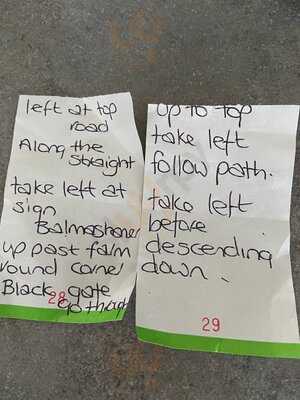 left at top
road
Along the
straight
take left at
sign
Balmashanner
up past farm
round corner
Black gate
go through
28
up to top
take left
follow path.
take left
before
descending
down.
29